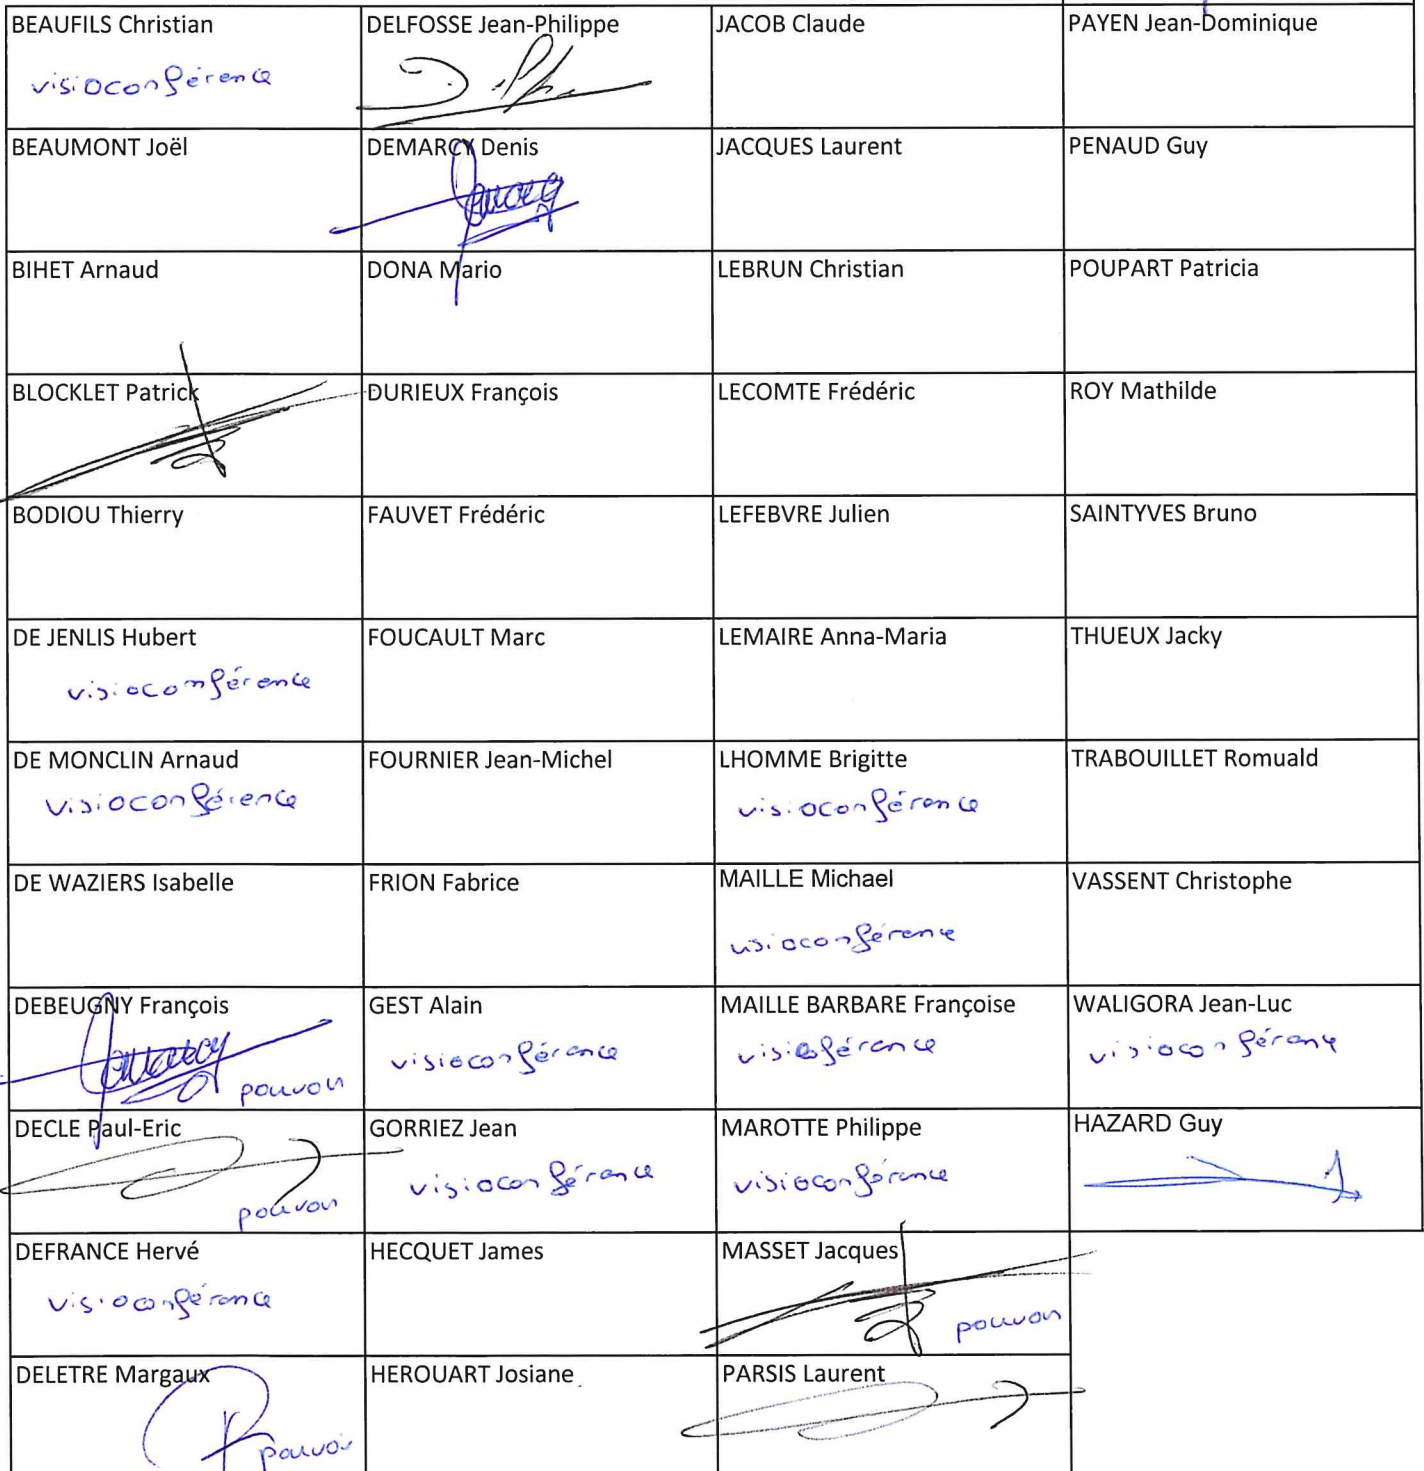 BEAUFILS Christian
visioconférence
DELFOSSE Jean-Philippe
JACOB Claude
PAYEN Jean-Dominique
BEAUMONT Joël
DEMARCY Denis
JACQUES Laurent
PENAUD Guy
BIHET Arnaud
DONA Mario
LEBRUN Christian
POUPART Patricia
BLOCKLET Patrick
DURIEUX François
LECOMTE Frédéric
ROY Mathilde
BODIOU Thierry
FAUVET Frédéric
LEFEBVRE Julien
SAINTYVES Bruno
DE JENLIS Hubert
visioconférence
FOUCAULT Marc
LEMAIRE Anna-Maria
THUEUX Jacky
DE MONCLIN Arnaud
visioconférence
FOURNIER Jean-Michel
LHOMME Brigitte
visioconférence
TRABOUILLET Romuald
DE WAZIERS Isabelle
FRION Fabrice
MAILLE Michael
visioconférence
VASSENT Christophe
DEBEUGNY François
pouvoir
GEST Alain
visioconférence
MAILLE BARBARE Françoise
visioférence
WALIGORA Jean-Luc
visioconférence
DECLE Paul-Eric
pouvoir
GORRIEZ Jean
visioconférence
MAROTTE Philippe
visioconférence
HAZARD Guy
DEFRANCE Hervé
visioconférence
HECQUET James
MASSET Jacques
pouvoir
DELETRE Margaux
pouvoir
HEROUART Josiane
PARSIS Laurent